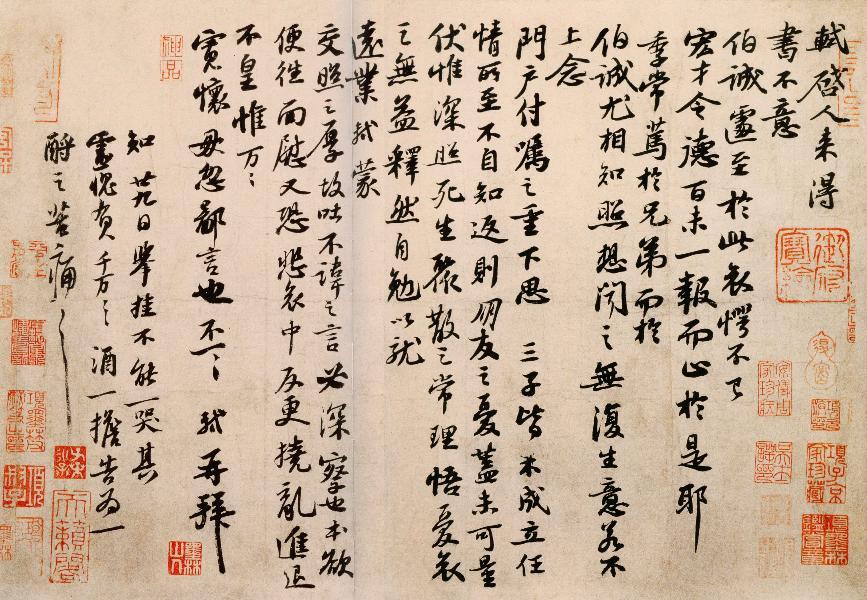 軾啓人来得
書不意
伯誠遽至於此哀愕不已
宏才令德百未一報而止於是耶
季常篤於兄弟而於
伯誠尤相知照想聞之無復生意若不
上念
門户付囑之重下思三子皆未成立任
情所至不自知返則朋友之憂蓋未可量
伏惟深照死生聚散之常理悟憂哀
之無益釋然自勉以就
遠業軾蒙
交照之厚故吐不諱之言必深察也本欲
便往面慰又恐悲哀中反更撓亂進退
不皇惟万〻
寬懷毋忽鄙言也不一〻軾再拜
知廿九日舉挂不能一哭其
靈愧負千万〻酒一擔告為一
酹之苦痛〻〻
御府寶繪
項子京家珍藏
神品
墨林山人
天籟閣